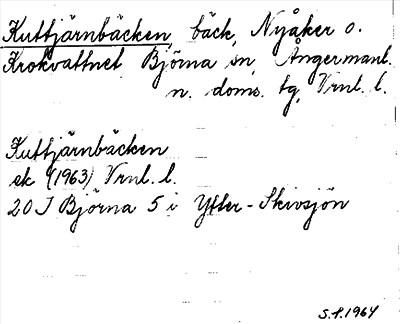 Kuttjärnbäcken, bäck, Nyåker o.
Krokvattnet Björna sn, Ångermanl.
n. doms. tg, Vrnl. l.
Kuttjärnbäcken
ek (1963) Vrnl. l.
20 I Björna 5 i Ytter-Skivsjön
S.F.1964